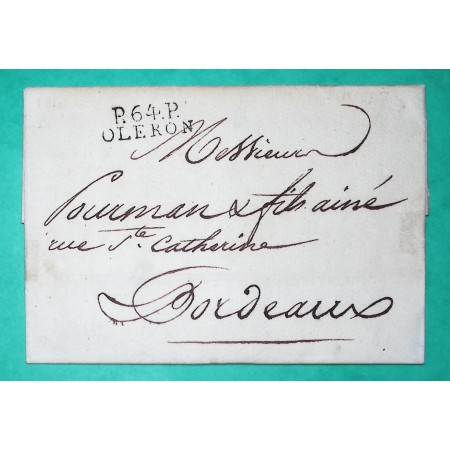 P.64.P.
OLERON
Messieurs
Pourman & fils ainé
rue Ste Catherine
Bordeaux